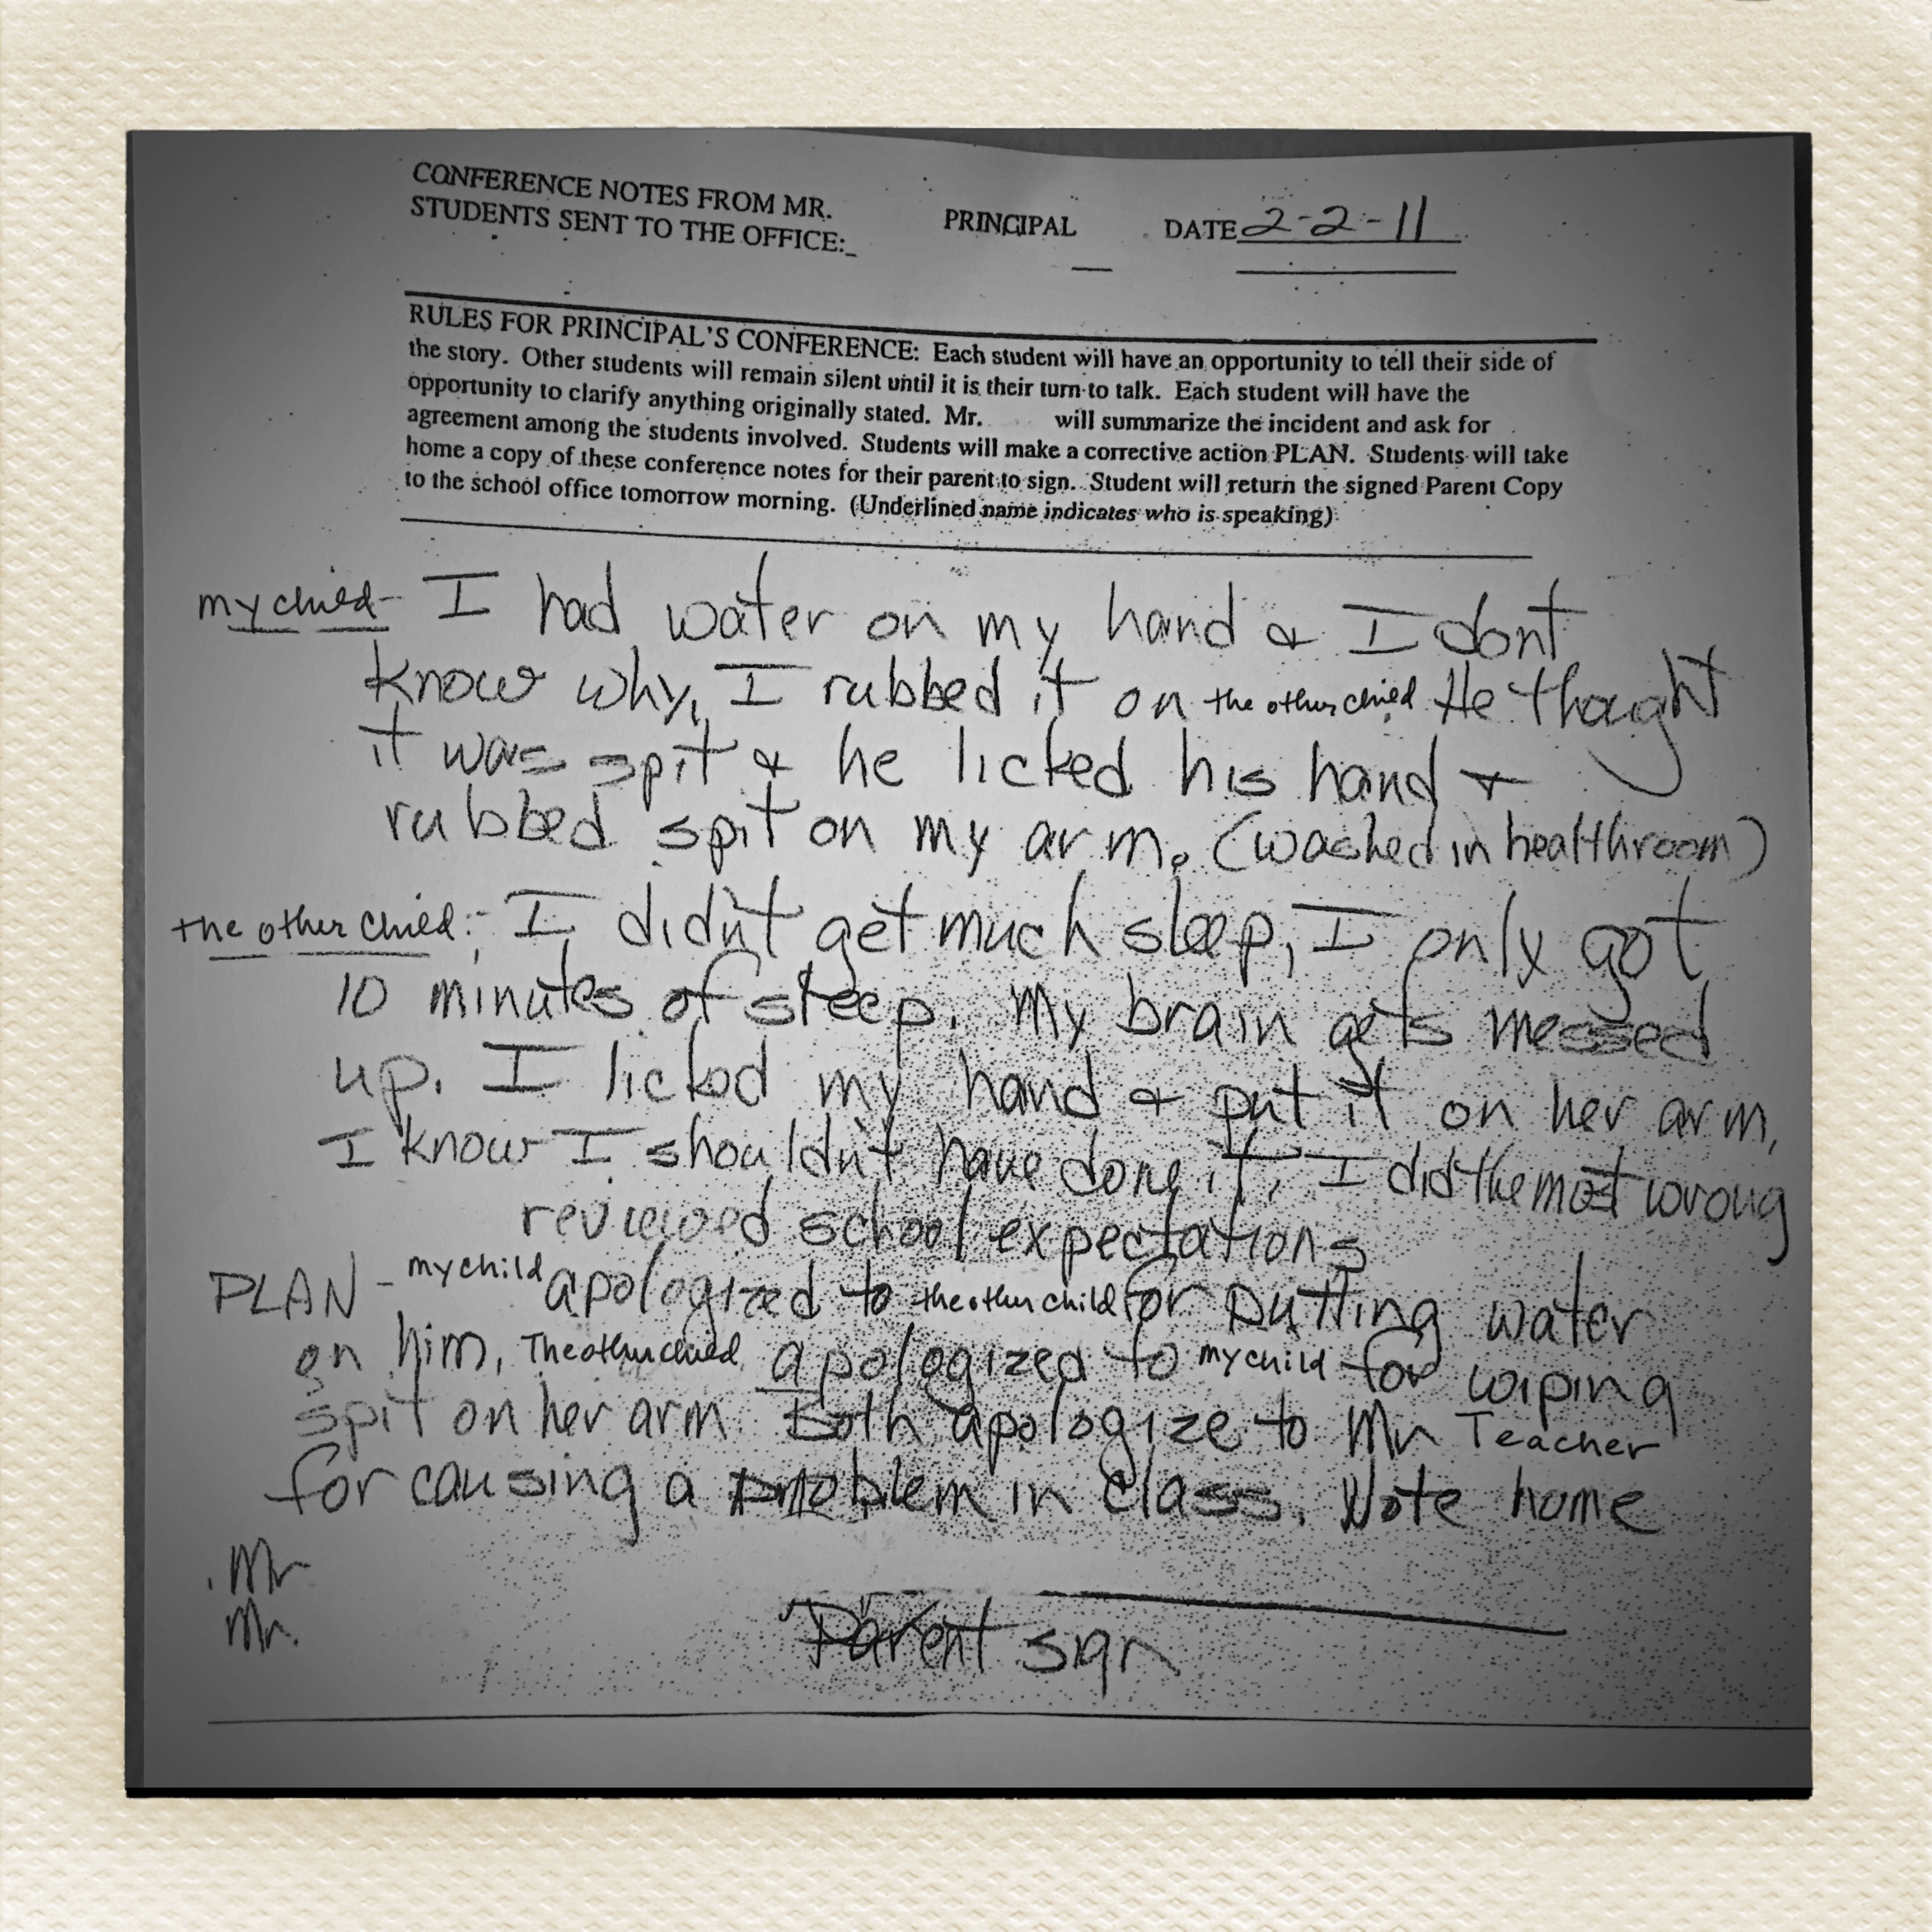 CONFERENCE NOTES FROM MR. PRINCIPAL DATE 2-2-11
STUDENTS SENT TO THE OFFICE:_
RULES FOR PRINCIPAL'S CONFERENCE: Each student will have an opportunity to tell their side of
the story. Other students will remain silent until it is their turn to talk. Each student will have the
opportunity to clarify anything originally stated. Mr. will summarize the incident and ask for
agreement among the students involved. Students will make a corrective action PLAN. Students will take
home a copy of these conference notes for their parent to sign. Student will return the signed Parent Copy
to the school office tomorrow morning. (Underlined name indicates who is speaking)
my child- I had water on my hand & I dont
know why, I rubbed it on the other child He thought
it was spit & he licked his hand &
rubbed spit on my arm. (washed in healthroom)
the other child:- I didn't get much sleep, I only got
10 minutes of sleep. My brain gets messed
up. I licked my hand & put it on her arm,
I know I shouldn't have done it, I did the most wrong
reviewed school expectations
PLAN - my child apologized to the other child for putting water
on him, The other child apologized to my child for wiping
spit on her arm. Both apologize to Mr Teacher
for causing a problem in class. Note home
Mr
Mr.
Parent sign